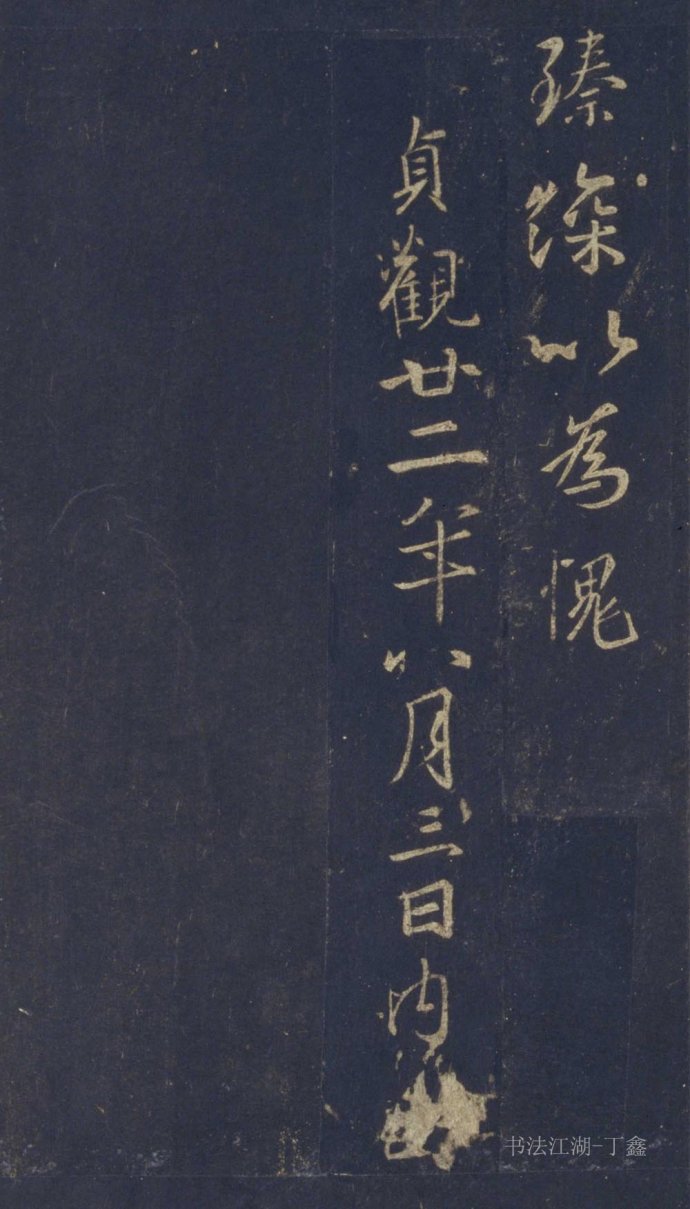 臻深以為愧
貞觀廿二年八月三日内
书法江湖-丁鑫